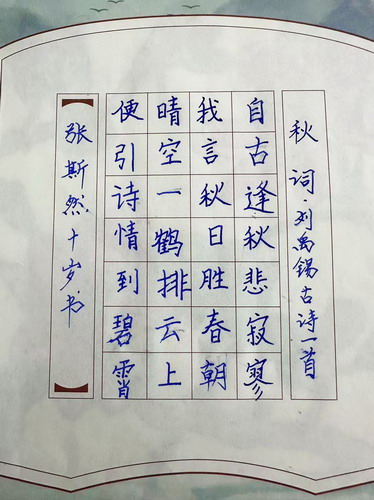 秋词·刘禹锡古诗一首
自古逢秋悲寂寥
我言秋日胜春朝
晴空一鹤排云上
便引诗情到碧霄
张斯然十岁书